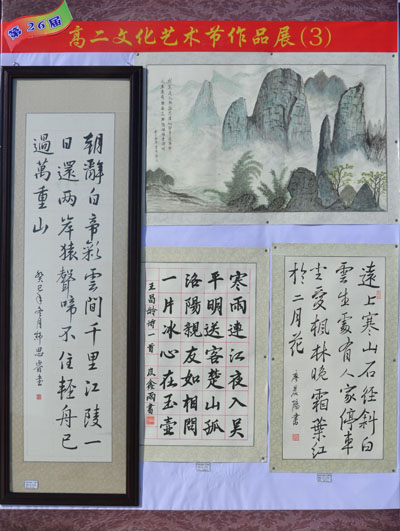 第26届
高二文化艺术节作品展(3)
朝辭白帝彩雲間千里江陵一
日還兩岸猿聲啼不住輕舟已
過萬重山
寒雨連江夜入吴
平明送客楚山孤
洛陽親友如相問
一片冰心在玉壺
王昌龄诗一首 段鑫雨書
遠上寒山石径斜白
雲生處有人家停車
坐愛楓林晚霜葉红
於二月花